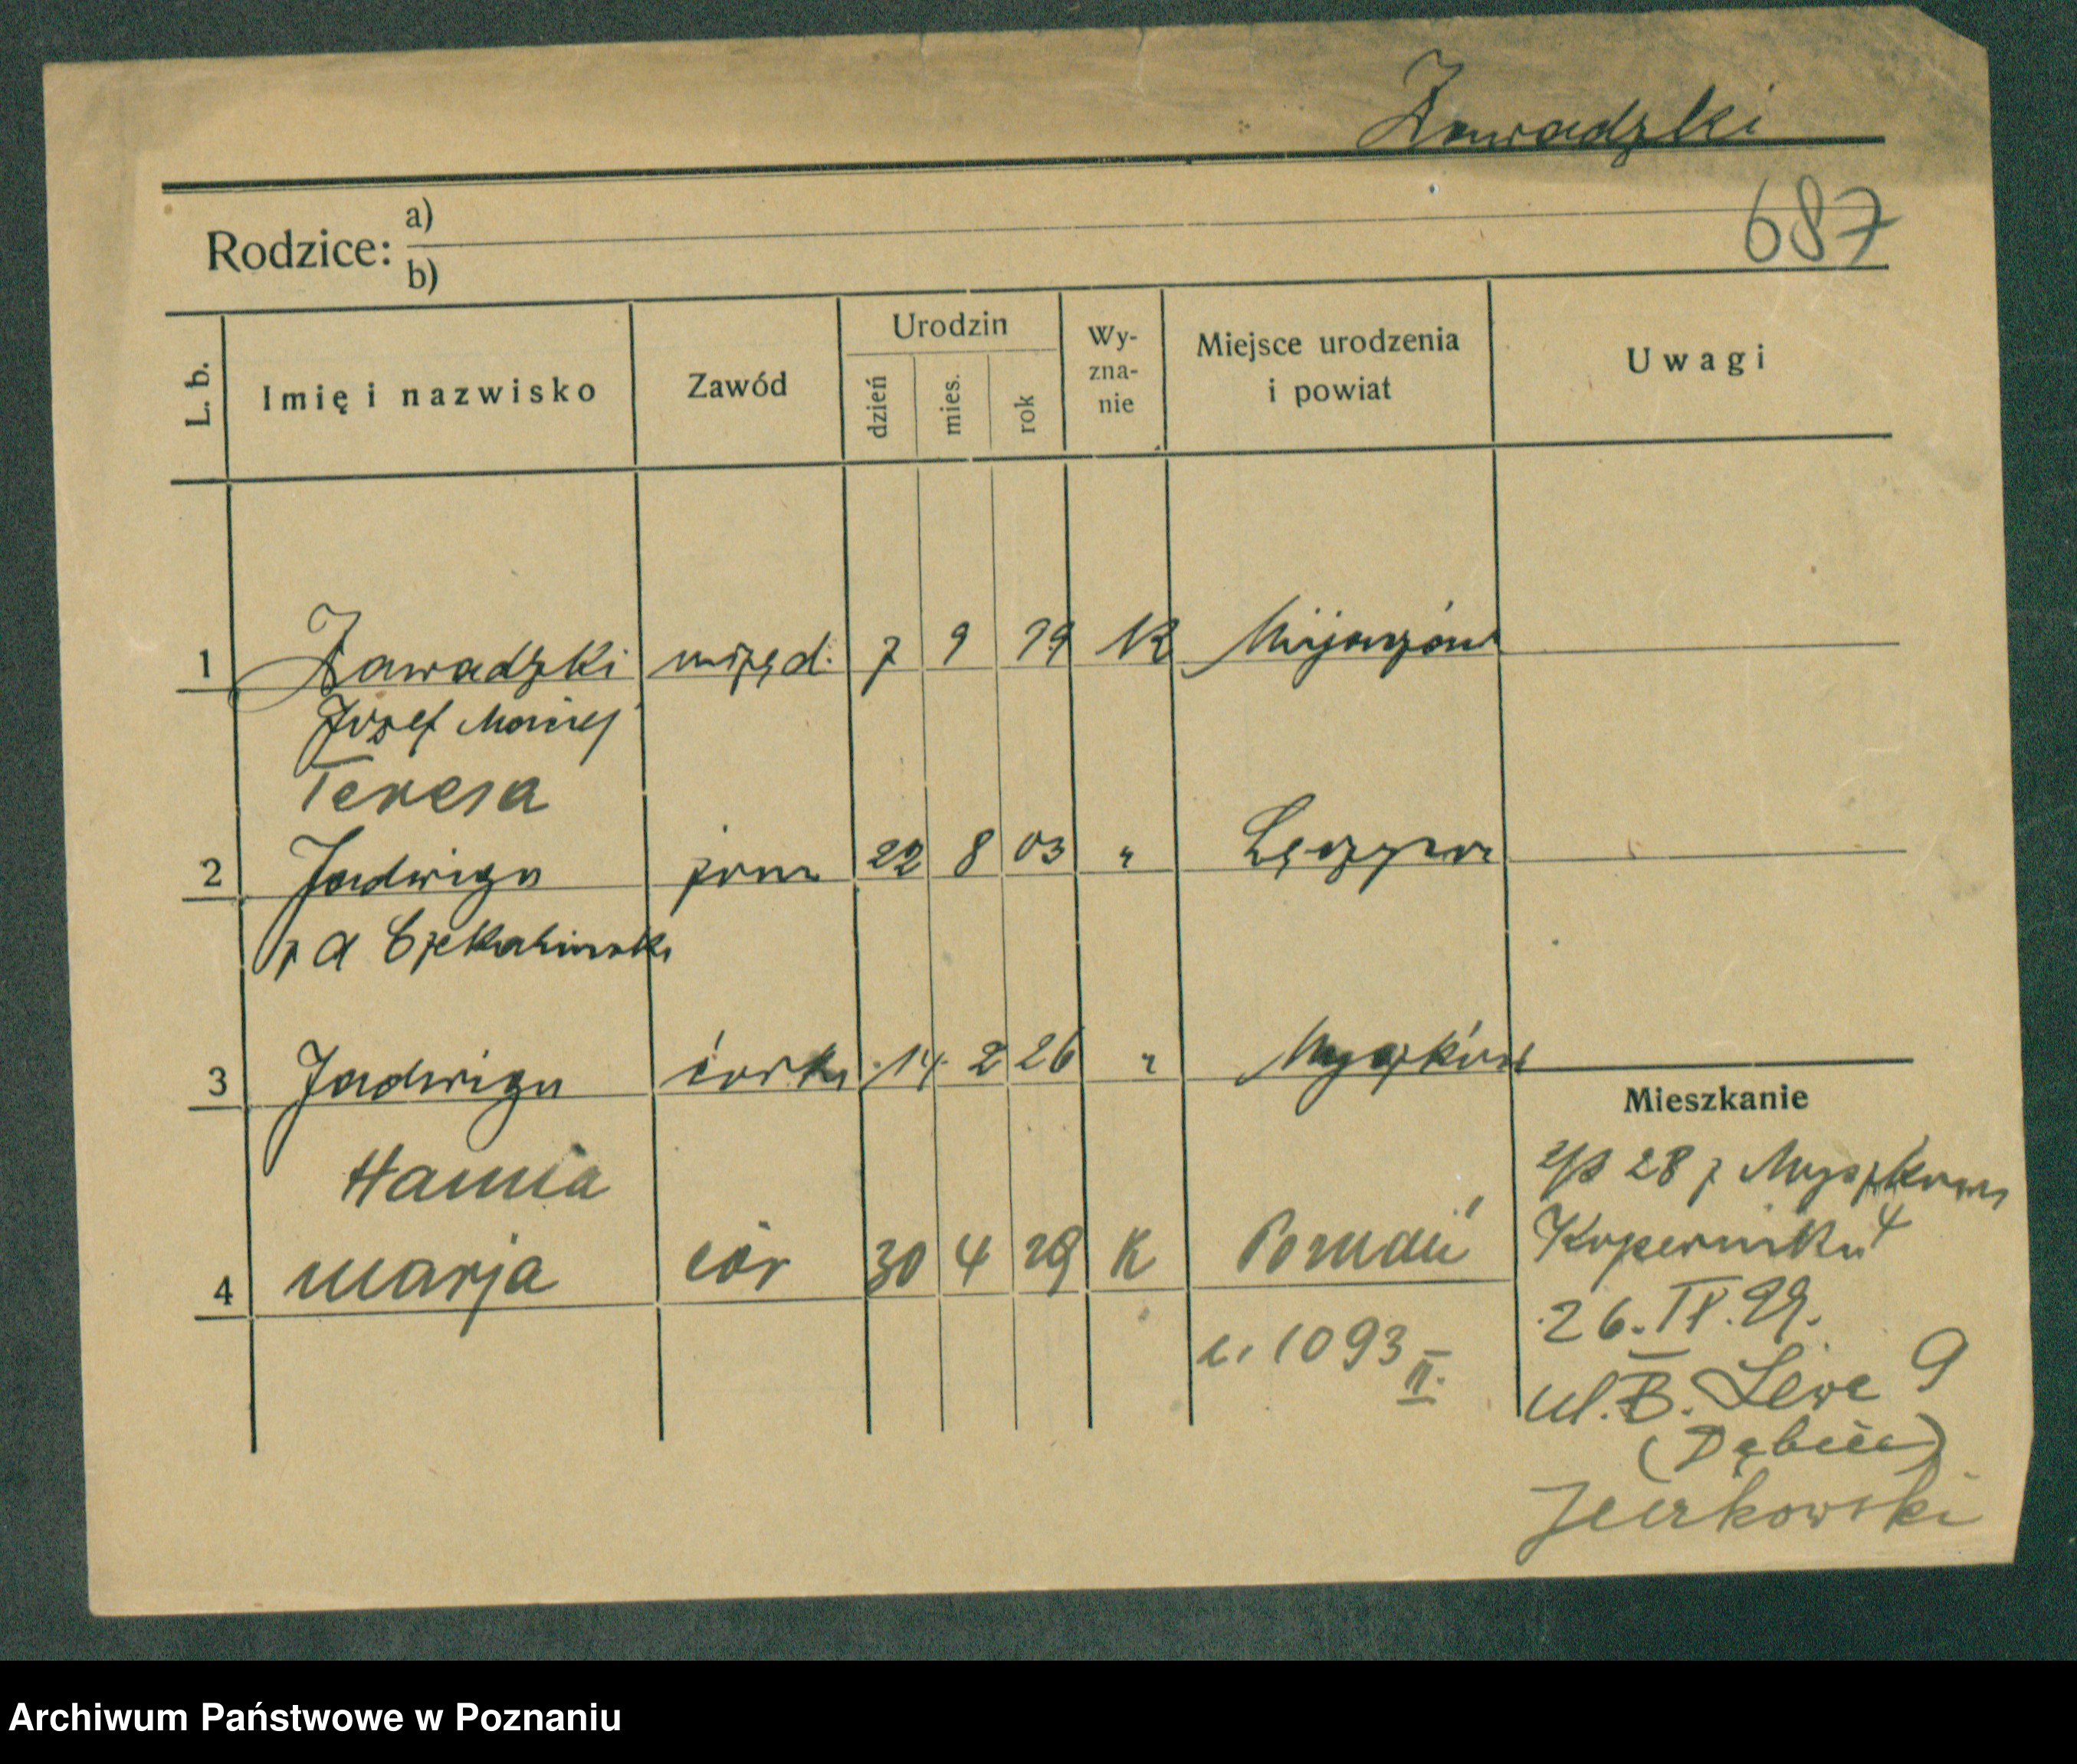 Zawadzki
687
Rodzice: a)
b)
L. b. Imię i nazwisko Zawód Urodzin dzień mies. rok Wy-zna-nie Miejsce urodzenia i powiat Uwagi
1 Zawadzki urzęd. 7 9 99 K
Józef Maciej
Teresa
2 Jadwiga żona 22 8 03 " Łęczyca
z d Czekalinsk
3 Jadwiga córka 14. 2 26 " Myszków
Hanna
4 Marja cór 30 4 29 K Poznań
Mieszkanie
28 z Myszkowa
Kopernika 4
26. IX. 29.
1093 II.
ul. B. 9
(Dębiec)
Archiwum Państwowe w Poznaniu